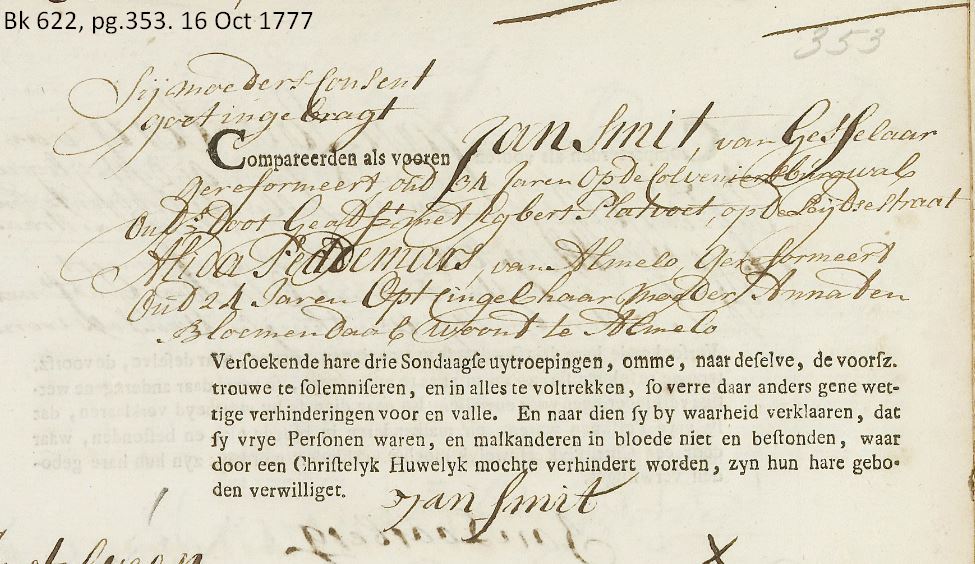 Bk 622, pg.353. 16 Oct 1777
353
Sij moeders Consent
goet ingebragt
Compareerden als vooren Jan Smit, van Gesselaar
gereformeert oud 34 Jaren op de Colveniersburgwal
Oud.s Doot Geads.t met Egbert Platvoet, op de Leijdsestraat
Alida Peddemars, van Almelo, Gereformeert
Oud 24 Jaren Opt Cingel haar moeder Anna ten
Bloemendaal woont te Almelo
Verſoekende hare drie Sondaagſe uytroepingen, omme, naar deſelve, de voorſz.
trouwe te ſolemniſeren, en in alles te voltrekken, ſo verre daar anders gene wet-
tige verhinderingen voor en valle. En naar dien ſy by waarheid verklaaren, dat
ſy vrye Perſonen waren, en malkanderen in bloede niet en beſtonden, waar
door een Chriſtelyk Huwelyk mochte verhindert worden, zyn hun hare gebo-
den verwilliget.
Jan Smit